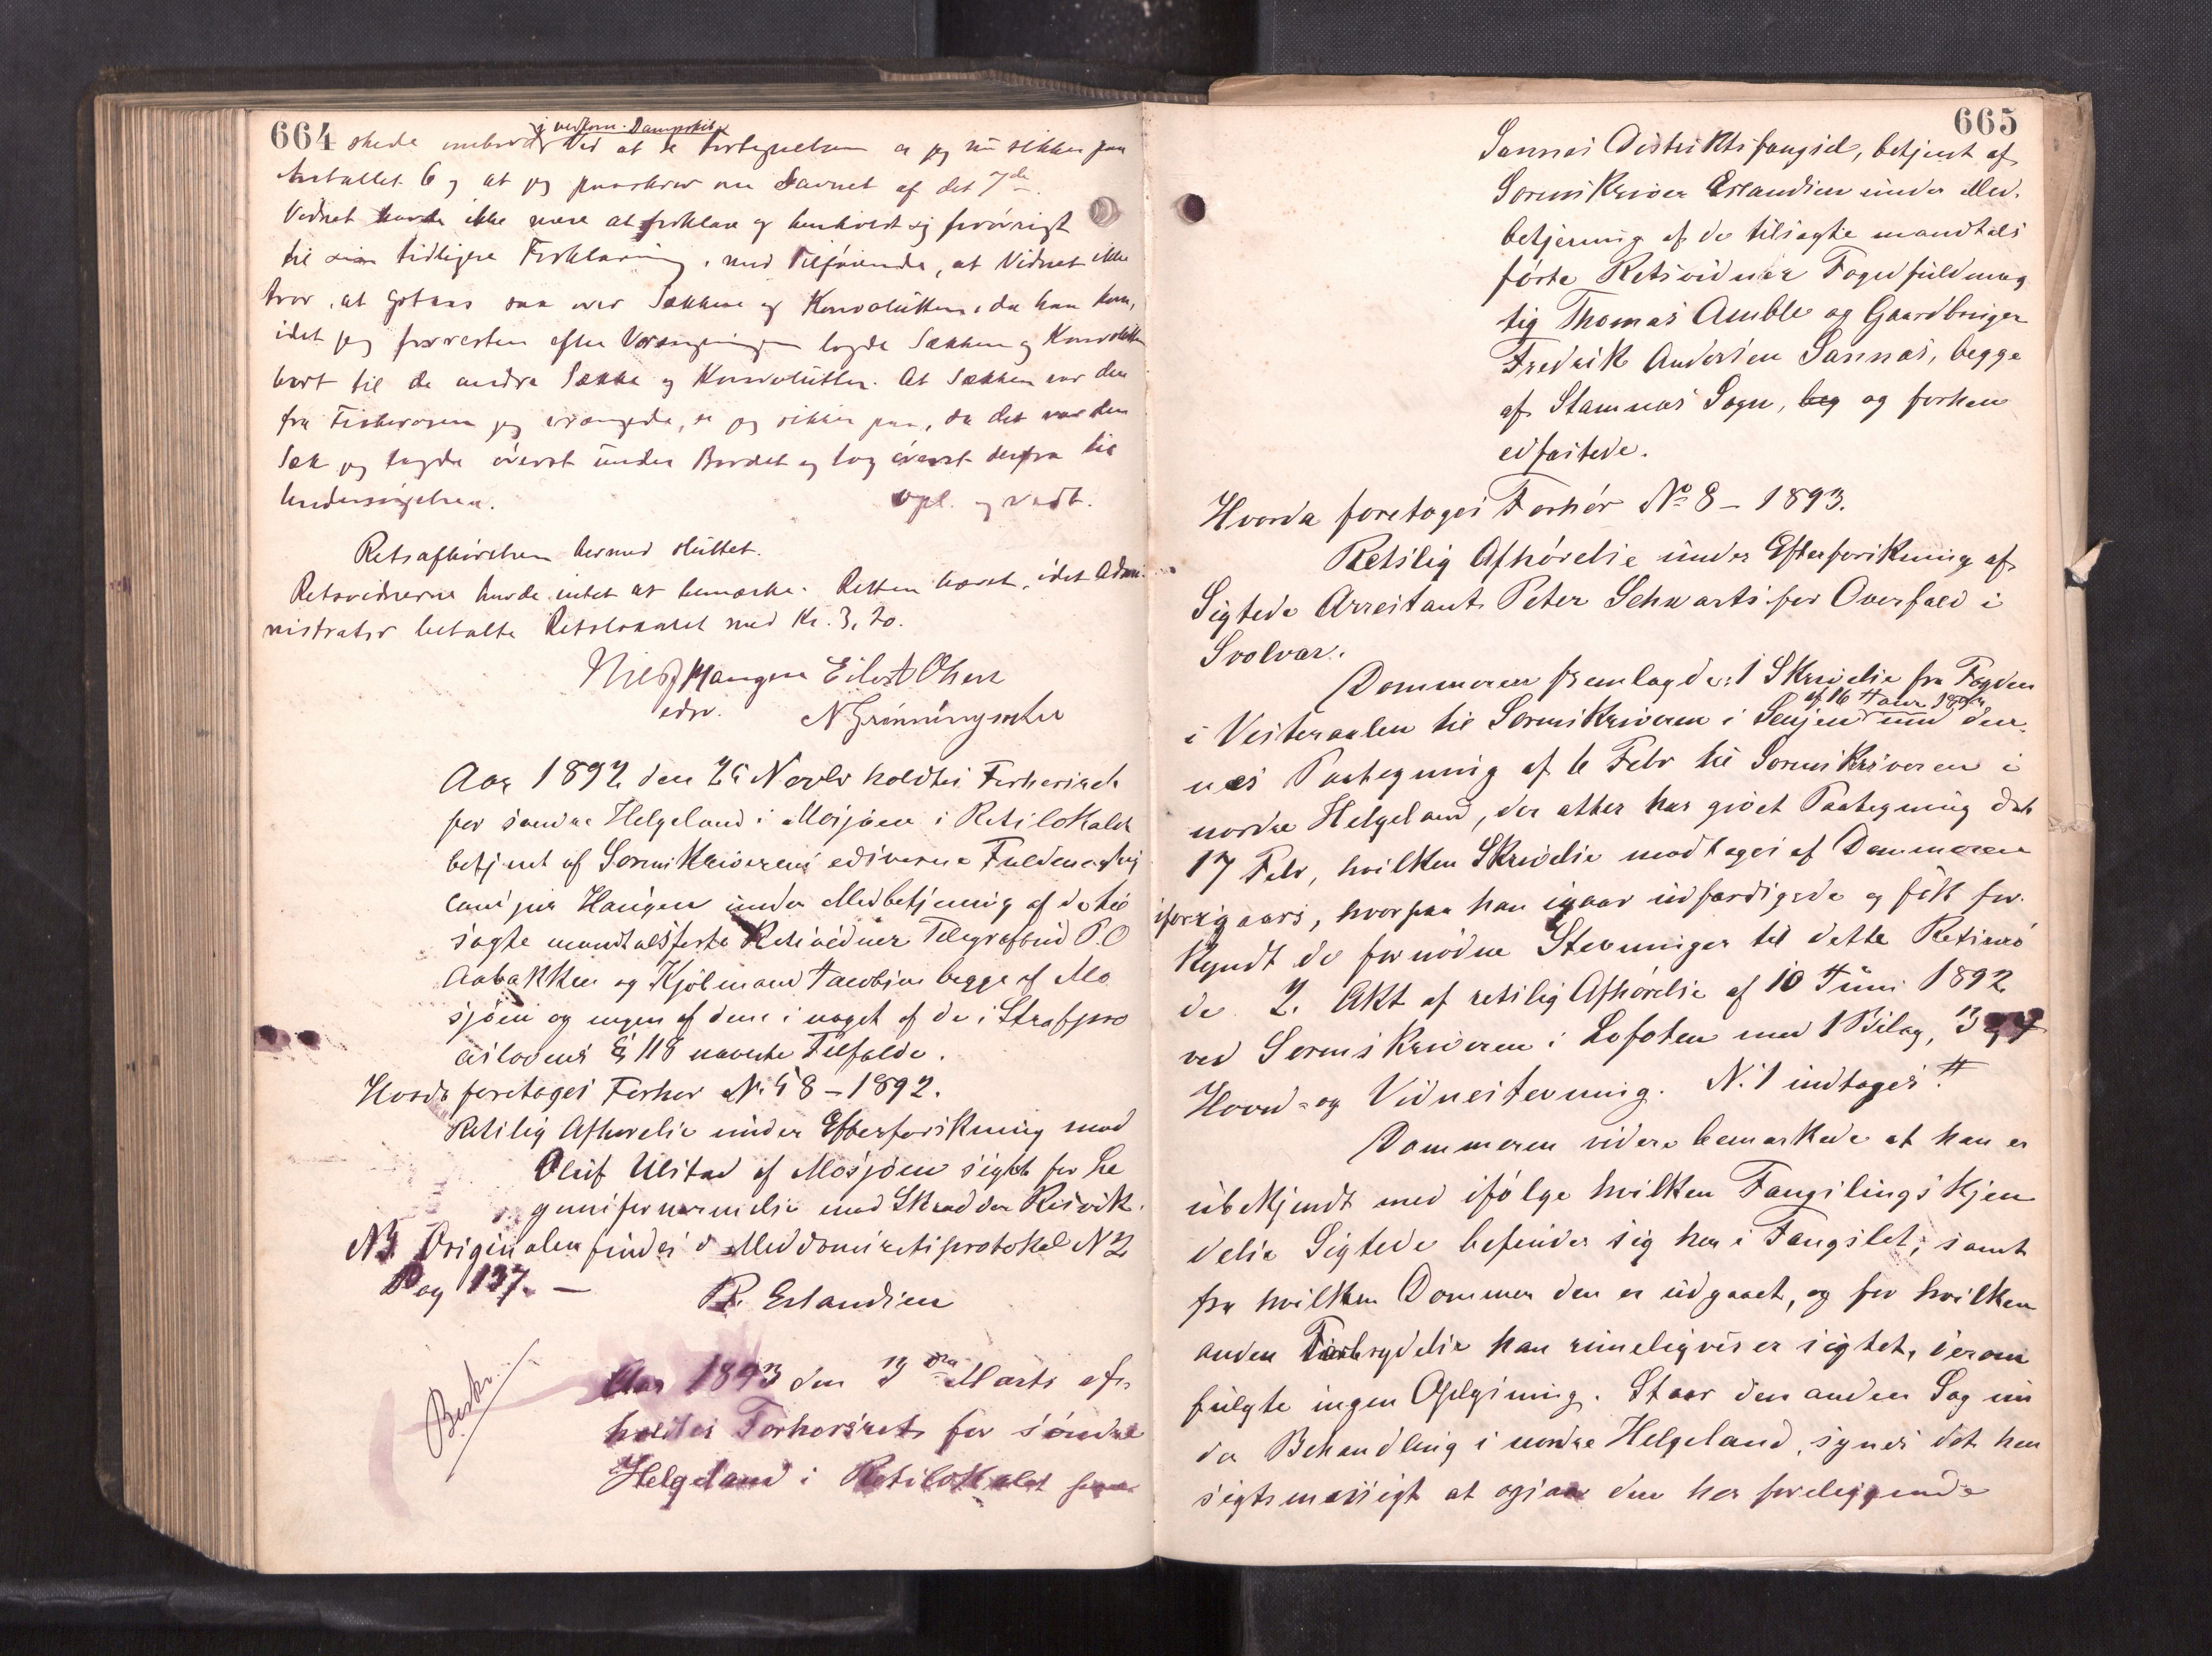 664
i vedkom. Dampskib
skede ombord Ved at se Fortegnelsen er jeg nu sikker paa
Antallet 6 og at jeg paaskrev om Savnet af det 7de.
Vidnet havde ikke mere at forklare og henholdt sig forøvrigt
til sin tidligere Forklaring, med Tilføiende, at Vidnet ikke
tror, at Gotaas saa over Sækkene og Konvolutten, da han kom,
idet jeg forresten efter Vrængningen lagde Sækken og Konvolutten
bort til de andre Sække og Konvolutter. At Sækken var den
fra Fiskerosen jeg vrængede, er jeg sikker paa, da det var den
Sæk jeg lagde øverst under Bordet og tog øverst derfra til
Undersøgelsen. Opl. og vedt.
Retsafhørelsen hermed sluttet.
Retsvidnerne havde intet at bemærke. Retten hævet, idet Admi-
nistrator betalte Retslokalet med Kr. 3,20.
Eilert Olsen
edsv. N Grønningsæter
Aar 1892 den 25 Novbr holdtes Forhørsret
for søndre Helgeland i Mosjøen i Retslokalet
betjent af Sorenskriverens edsvorne Fuldmægtig
cand jur Haugen under Medbetjening af de til
sagte mandtalsførte Retsvidner Telegrafbud P.O
Aabakken og Kjøbmand Jacobsen begge af Mo
sjøen og ingen af dem i noget af de i Strafpro
ceslovens § 118 nævnte Tilfælde.
Hvorda foretoges Forhør No 58 – 1892.
Retslig Afhørelse under Efterforskning mod
Oluf Ulstad af Mosjøen sigtet for Le
gemsfornærmelse mod Skrædder Resvik.
NB. Originalen findes i Meddomsretsprotokol N 2
Pag 137. –
R. Erlandsen
Beskr.
Aar 1893 den 3die Marts af-
holdtes Forhørsret for søndre
Helgeland i Retslokalet
665
Sannæs Distriktsfængsel, betjent af
Sorenskriver Erlandsen under Med-
betjening af de tilsagte mandtals
førte Retsvidner Fogedfuldmæg
tig Thomas Amble og Gaardbruger
Fredrik Andersen Sannæs, begge
af Stamnæs Sogn, beg og forhen
edfæstede.
Hvorda foretoges Forhør No 8 – 1893.
Retslig Afhørelse under Efterforskning af
Sigtede Arrestant Peter Schwarts for Overfald i
Svolvær.
Dommeren fremlagde: 1 Skrivelse fra Fogden
af 16 Janr 1893
i Vesteraalen til Sorenskriveren i Senjen med den-
nes Paategning af 6 Febr til Sorenskriveren i
nordre Helgeland, der atter har givet Paategning dat
17 Febr, hvilken Skrivelse modtoges af Dommeren
iforrigaars, hvorpaa han igaar udfærdigede og fik for-
kyndt de fornødne Stevninger til dette Retsmø
de 2. Akt af retslig Afhørelse af 10 Juni 1892
ved Sorenskriveren i Lofoten med 1 Bilag, 3 og 4
Hoved- og Vidnestevning. N. 1 indtages #
Dommeren videre bemærkede at han er
ubekjendt med ifølge hvilken Fængslingskjen
delse Sigtede befinder sig her i Fængslet, samt
fra hvilken Dommer den er udgaaet, og for hvilken
anden Forbrydelse han rimeligvis er sigtet, derom
fulgte ingen Oplysning. Staar den anden Sag un
der Behandling i nordre Helgeland, synes det hen
sigtsmæssigt at ogsaa den her foreliggende